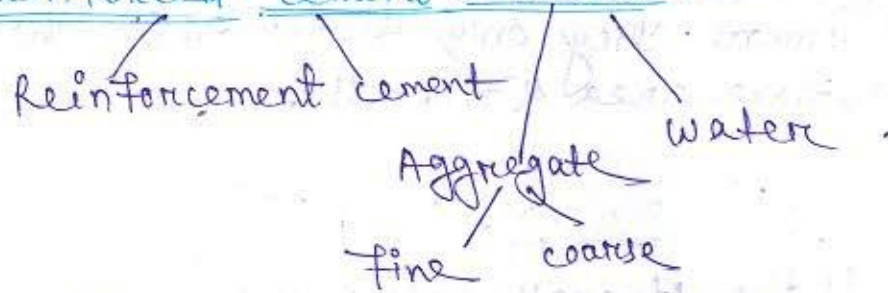 Reinforcement cement
Water
Aggregate
fine coarse